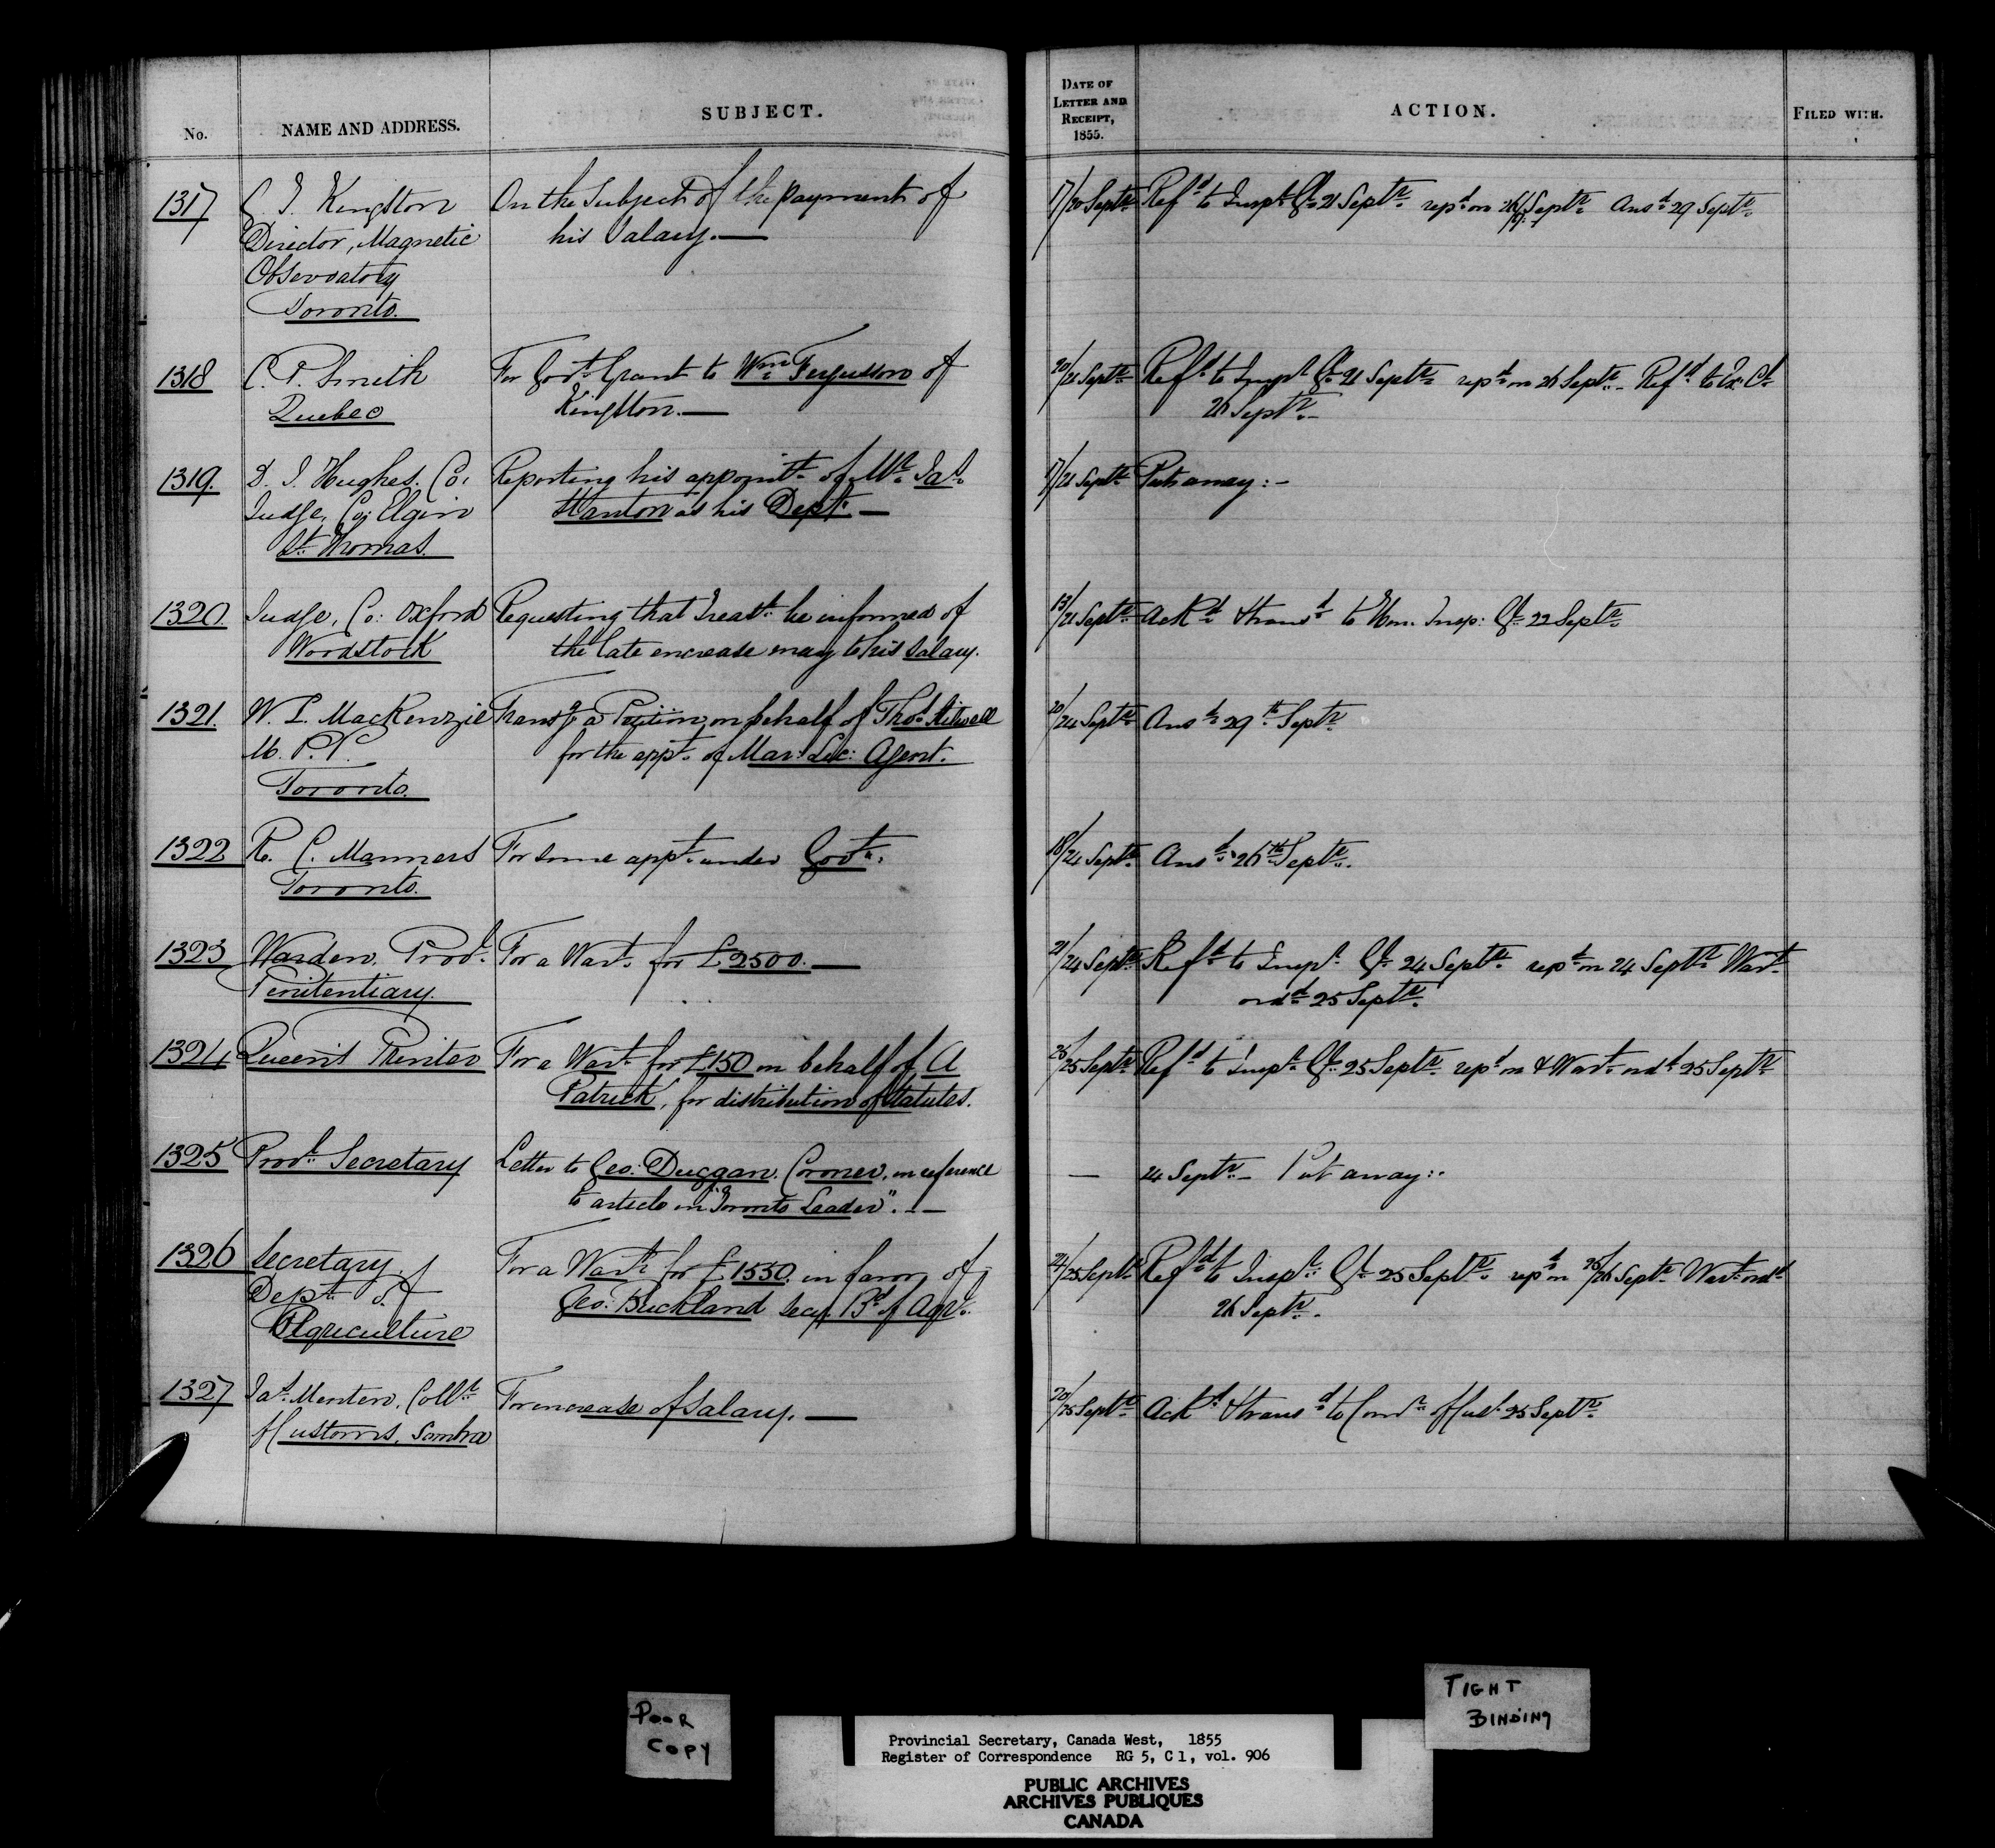 No.
NAME AND ADDRESS.
SUBJECT.
DATE OF
LETTER AND
RECEIPT,
1855.
ACTION.
FILED WITH.
1317
G. T. Kingston
Director, Magnetic
Observatory
Toronto.
On the Subject of the payment of
his Salary.—
17/20 Septr.
Refd. to Inspr. Gl. 21 Septr. repd. on Septr. Ansd. 29 Septr.
1318
C. P. Smith
Quebec
For Govt. Grant to Wm. Fergusson of
Kingston.—
20/21 Septr.
Refd. to Inspr. Gl. 21 Septr. repd. on 26 Septr.- Refd. to Ex: Cl.
26 Septr.-
1319.
D. J. Hughes. Co.
Judge, Co; Elgin
St. Thomas.
Reporting his appointt. of Mr. Jas.
Stanton as his Dept. —
17/21 Septr.
Put away:-
1320
Judge, Co: Oxford
Woodstock
Requesting that Treast. be informed of
the late encrease in his salary.
13/21 Septr.
Ackd. & transd. to Hon. Insp: Gl. 22 Septr.
1321.
W. L. MacKenzie
M. P. P.
Toronto.
Transg. a Petition on behalf of Thos.
for the appt. of Mar: Lic: Agent.
20/24 Septr.
Ansd. 29th. Septr.
1322
R. C. Manners
Toronto.
For some appt. under Govt.
18/24 Septr.
Ansd. 26th Septr.
1323
Warden. Provl.
Penitentiary.
For a Wart. for £2500.—
21/24 Septr.
Refd. to Inspr. Gl. 24 Septr. repd. on 24 Septr. Wart.
ordd. 25 Septr.
1324
Queen's Printer
For a Wart. for £150 on behalf of A
Patrick, for distribution of Statutes.
25/25 Septr.
Refd. to Inspr. Gl. 25 Septr. repd. on & Wart. ordd. 25 Septr.
1325
Provl. Secretary
Letter to Geo: Duggan. Coroner, in reference
to article in "Toronto Leader". —
—
24 Septr.- Put away:-
1326
Secretary.
Dept. of
Agriculture
For a Wart. for £1550. in favor of
Geo: Buckland Secy. Bd. of Agr.
24/25 Septr.
Refd. to Inspr. Gl. 25 Septr. repd. on 25/26 Septr. Wart. ordd.
26 Septr.
1327
Jas. Menten. Collr.
Customs. Sombra
For increase of Salary.—
20/25 Septr.
Ackd. & transd. to Comr. of Cus. 25 Septr.
POOR
COPY
TIGHT
BINDING
Provincial Secretary, Canada West, 1855
Register of Correspondence RG 5, C 1, vol. 906
PUBLIC ARCHIVES
ARCHIVES PUBLIQUES
CANADA